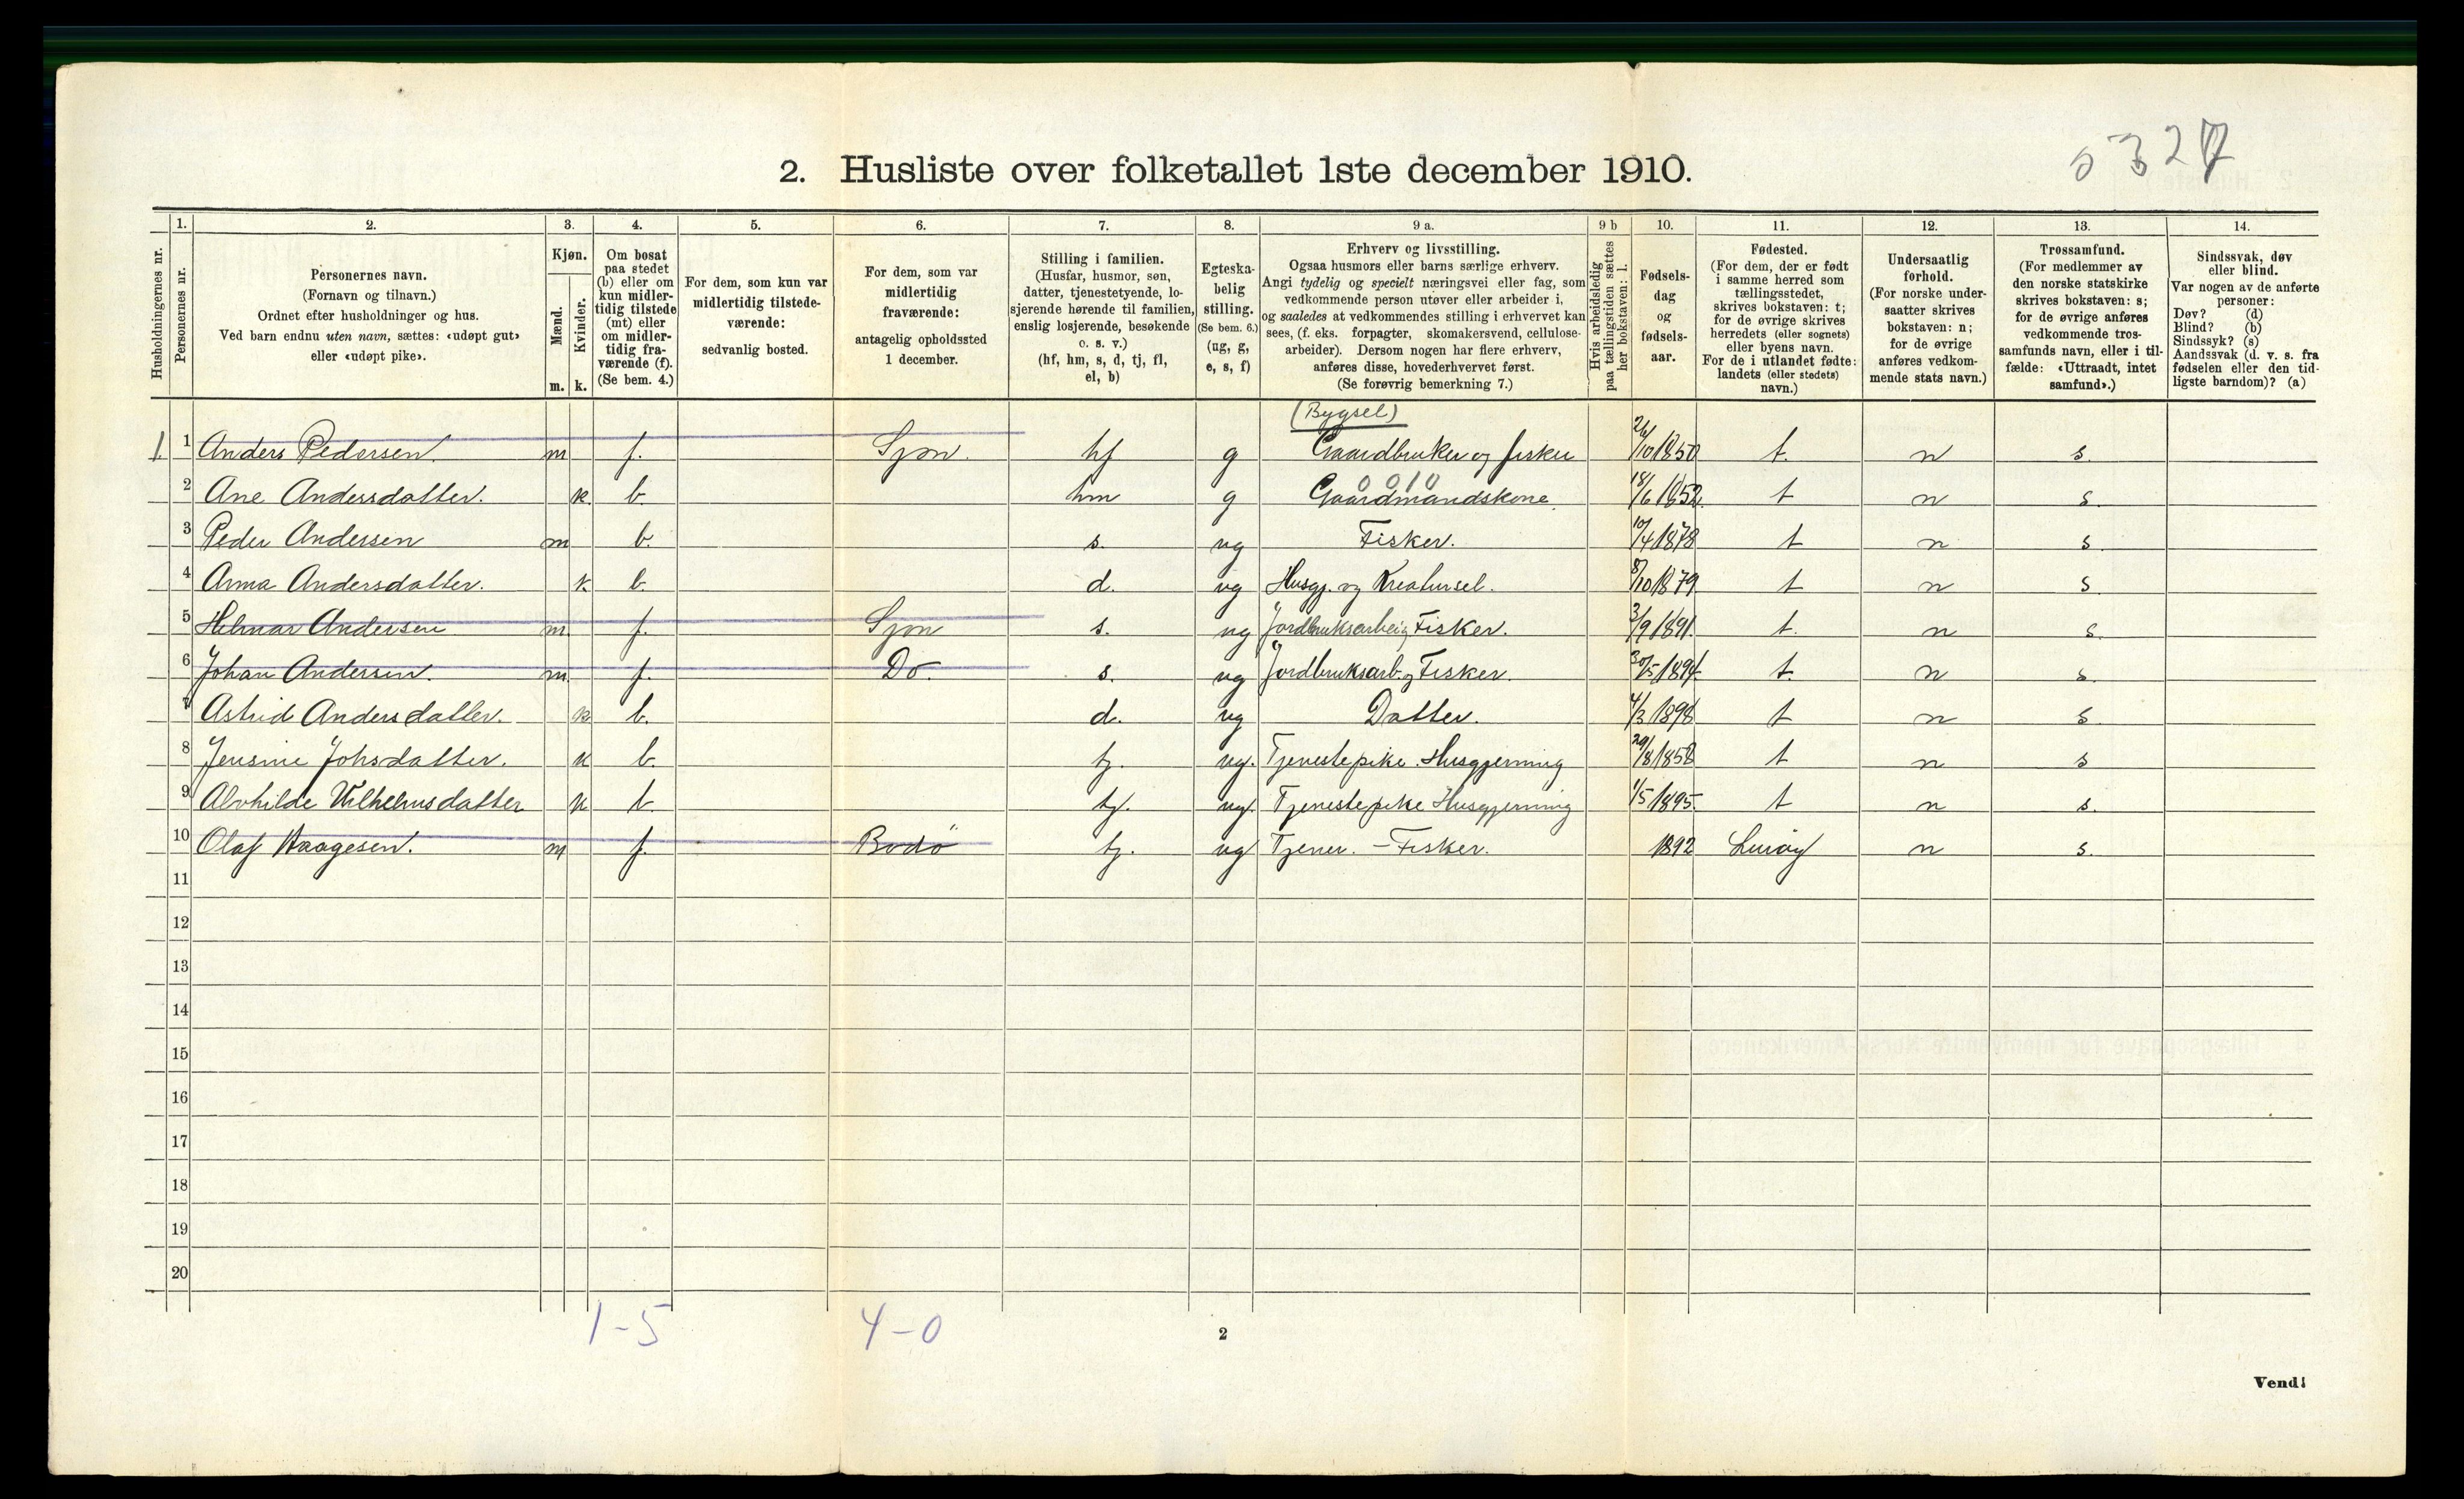 5327
2. Husliste over folketallet 1ste december 1910.
Husholdningernes nr.
1. Personernes nr.
2. Personernes navn. (Fornavn og tilnavn.) Ordnet efter husholdninger og hus. Ved barn endnu uten navn, sættes: «udøpt gut» eller «udøpt pike».
3. Kjøn. Mænd. m. Kvinder. k.
4. Om bosat paa stedet (b) eller om kun midlertidig tilstede (mt) eller om midlertidig fraværende (f). (Se bem. 4.)
5. For dem, som kun var midlertidig tilstedeværende: sedvanlig bosted.
6. For dem, som var midlertidig fraværende: antagelig opholdssted 1 december.
7. Stilling i familien. (Husfar, husmor, søn, datter, tjenestetyende, losjerende hørende til familien, enslig losjerende, besøkende o. s. v.) (hf, hm, s, d, tj, fl, el, b)
8. Egteskabelig stilling. (Se bem. 6.) (ug, g, e, s, f)
9 a. Erhverv og livsstilling. Ogsaa husmors eller barns særlige erhverv. Angi tydelig og specielt næringsvei eller fag, som vedkommende person utøver eller arbeider i, og saaledes at vedkommendes stilling i erhvervet kan sees, (f. eks. forpagter, skomakersvend, cellulosearbeider). Dersom nogen har flere erhverv, anføres disse, hovederhvervet først. (Se forøvrig bemerkning 7.)
9 b Hvis arbeidsledig paa tællingstiden sættes her bokstaven: l.
10. Fødselsdag og fødselsaar.
11. Fødested. (For dem, der er født i samme herred som tællingsstedet, skrives bokstaven: t; for de øvrige skrives herredets (eller sognets) eller byens navn. For de i utlandet fødte: landets (eller stedets) navn.)
12. Undersaatlig forhold. (For norske undersaatter skrives bokstaven: n; for de øvrige anføres vedkommende stats navn.)
13. Trossamfund. (For medlemmer av den norske statskirke skrives bokstaven: s; for de øvrige anføres vedkommende trossamfunds navn, eller i tilfælde: «Uttraadt, intet samfund».)
14. Sindssvak, døv eller blind. Var nogen av de anførte personer: Døv? (d) Blind? (b) Sindssyk? (s) Aandssvak (d. v. s. fra fødselen eller den tidligste barndom)? (a)
(Bygsel)
1. 1 Anders Pedersen. m f. Sjon. hf g Gaardbruker og fisker 26/10 1850 t. n s.
0 0 1 0
2 Ane Andersdatter. k. b. hm g Gaardmandskone. 18/6 1852. t n s.
3 Peder Andersen m b. s. ug Fisker. 10/4 1878 t n s.
4 Anna Andersdatter. k. b. d. ug Husgj. og Kreaturstel. 8/10 1879. t n s
5 Helmar Andersen m. f. Sjon s. ug Jordbruksarbei. og Fisker. 3/9 1891. t. n s.
6 Johan Andersen. m. f. Do. s. ug Jordbruksarb. og Fisker. 30/5 1894. t. n s.
7 Astrid Andersdatter. k b. d. ug Datter. 4/3 1898 t n s
8 Jensine Johsdatter. k b. tj. ug. Tjenestepike. Husgjerning 29/8 1858 t n s
9 Alvhilde Vilhelmsdatter k b tj. ug. Tjenestepike Husgjerning 1/5 1895. t n s.
10 Olaf Haagesen. m f. Bodö tj. ug Tjener. - Fisker. 1892 Luröy n s.
11
12
13
14
15
16
17
18
19
20
1-5 4-0
2
Vend!